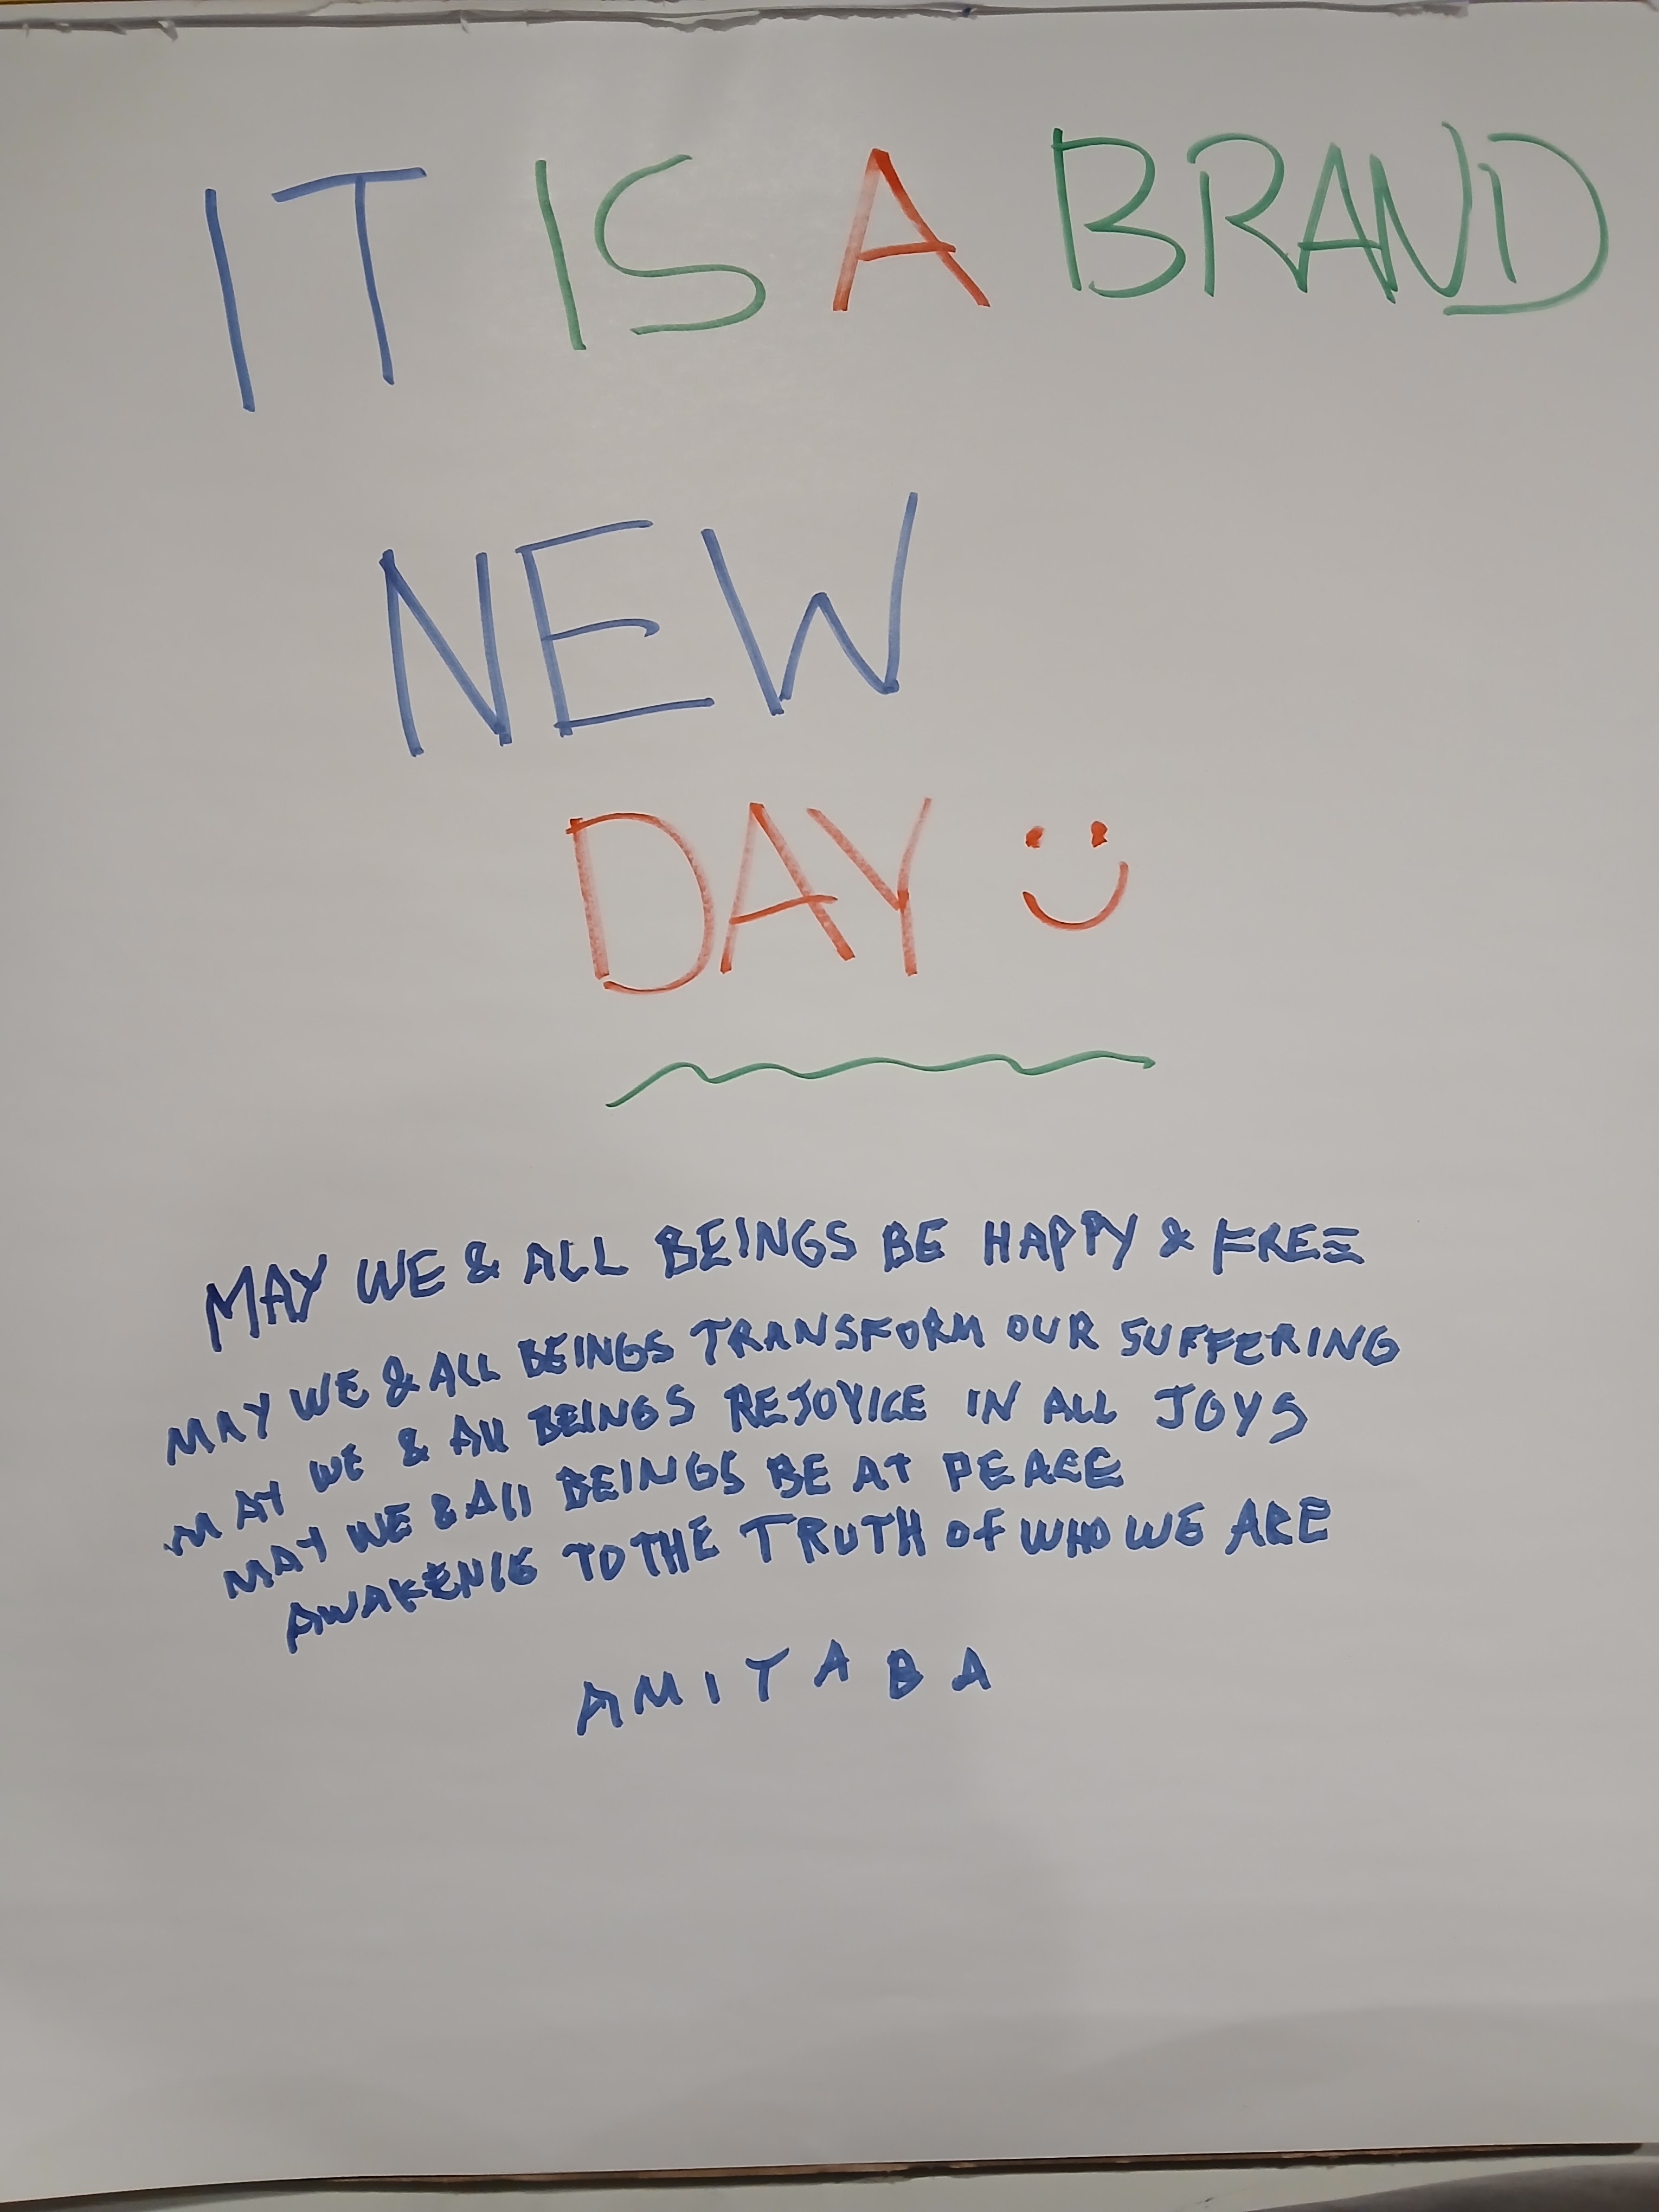 IT IS A BRAND
NEW
DAY
MAY WE & ALL BEINGS BE HAPPY & FREE
MAY WE & ALL BEINGS TRANSFORM OUR SUFFERING
MAY WE & All BEINGS REJOYICE IN ALL JOYS
MAY WE & All BEINGS BE AT PEACE
AWAKENIG TO THE TRUTH Of WHO WE ARE
AMITABA